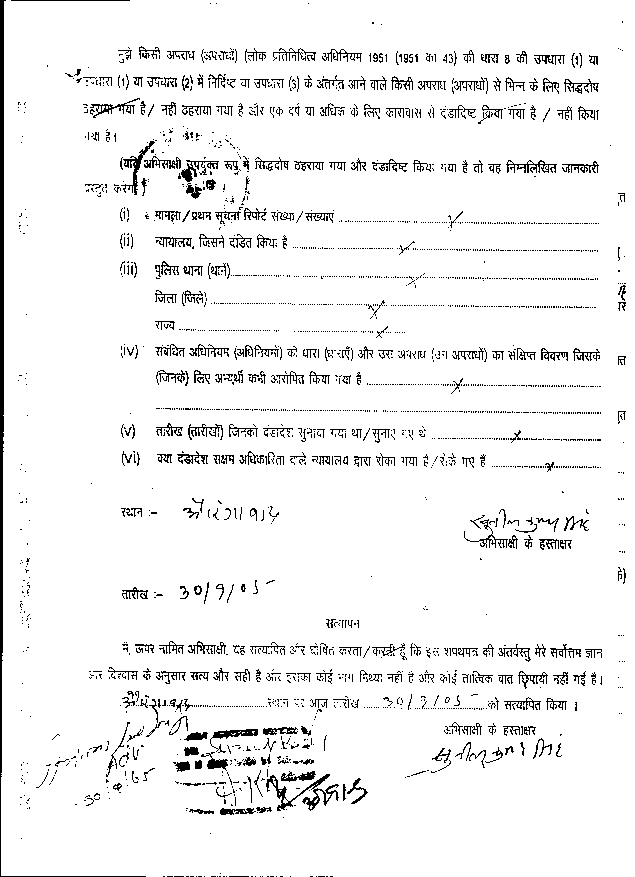 मुझे किसी अपराध (अपराधों) (लोक प्रतिनिधित्व अधिनियम 1951 (1951 का 43) की धारा 8 की उपधारा (1) या
उपधारा (1) या उपधारा (2) में निर्दिष्ट या उपधारा (3) के अंतर्गत आने वाले किसी अपराध (अपराधों) से भिन्न के लिए सिद्धदोष
ठहराया गया है / नहीं ठहराया गया है और एक वर्ष या अधिक के लिए कारावास से दंडादिष्ट किया गया है / नहीं किया
गया है।
(यदि अभिसाक्षी उपर्युक्त रूप में सिद्धदोष ठहराया गया और दंडादिष्ट किया गया है तो वह निम्नलिखित जानकारी
प्रस्तुत करेगा)
(i) मामला / प्रथम सूचना रिपोर्ट संख्या / संख्याएं ........ x
(ii) न्यायालय, जिसने दंडित किया है ........ x
(iii) पुलिस थाना (थाने) ........ x
जिला (जिले) ........ x
राज्य ........ x
(iv) संबंधित अधिनियम (अधिनियमों) की धारा (धाराएँ) और उस अपराध (उन अपराधों) का संक्षिप्त विवरण जिसके
(जिनके) लिए अभ्यर्थी कभी आरोपित किया गया है ........ x
(v) तारीख (तारीखों) जिनको दंडादेश सुनाया गया था / सुनाए गए थे ........ x
(vi) क्या दंडादेश सक्षम अधिकारिता वाले न्यायालय द्वारा रोका गया है / रोके गए हैं ........ x
स्थान :- औरंगाबाद
अभिसाक्षी के हस्ताक्षर
तारीख :- 30/9/05
सत्यापन
मैं, ऊपर नामित अभिसाक्षी, यह सत्यापित और घोषित करता / करती हूँ कि इस शपथपत्र की अंतर्वस्तु मेरे सर्वोत्तम ज्ञान
और विश्वास के अनुसार सत्य और सही है और इसका कोई भाग मिथ्या नहीं है और कोई तात्विक बात छिपायी नहीं गई है।
औरंगाबाद स्थान पर आज तारीख 30/9/05 को सत्यापित किया।
अभिसाक्षी के हस्ताक्षर
ADV
30/9/05